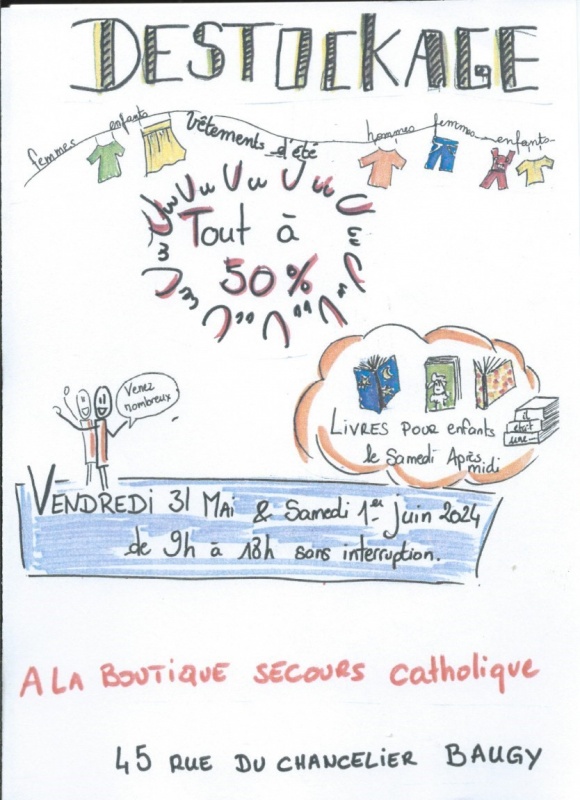 DESTOCKAGE
femmes enfants vêtements d'été hommes femmes enfants
Tout à
50%
Venez
nombreux
LIVRES POUR enfants
le Samedi Après
midi
il
était
une
VENDREDI 31 MAI & Samedi 1er juin 2024
de 9h à 18h sans interruption.
A LA BOUTIQUE SECOURS catholique
45 RUE DU CHANCELIER BAUGY